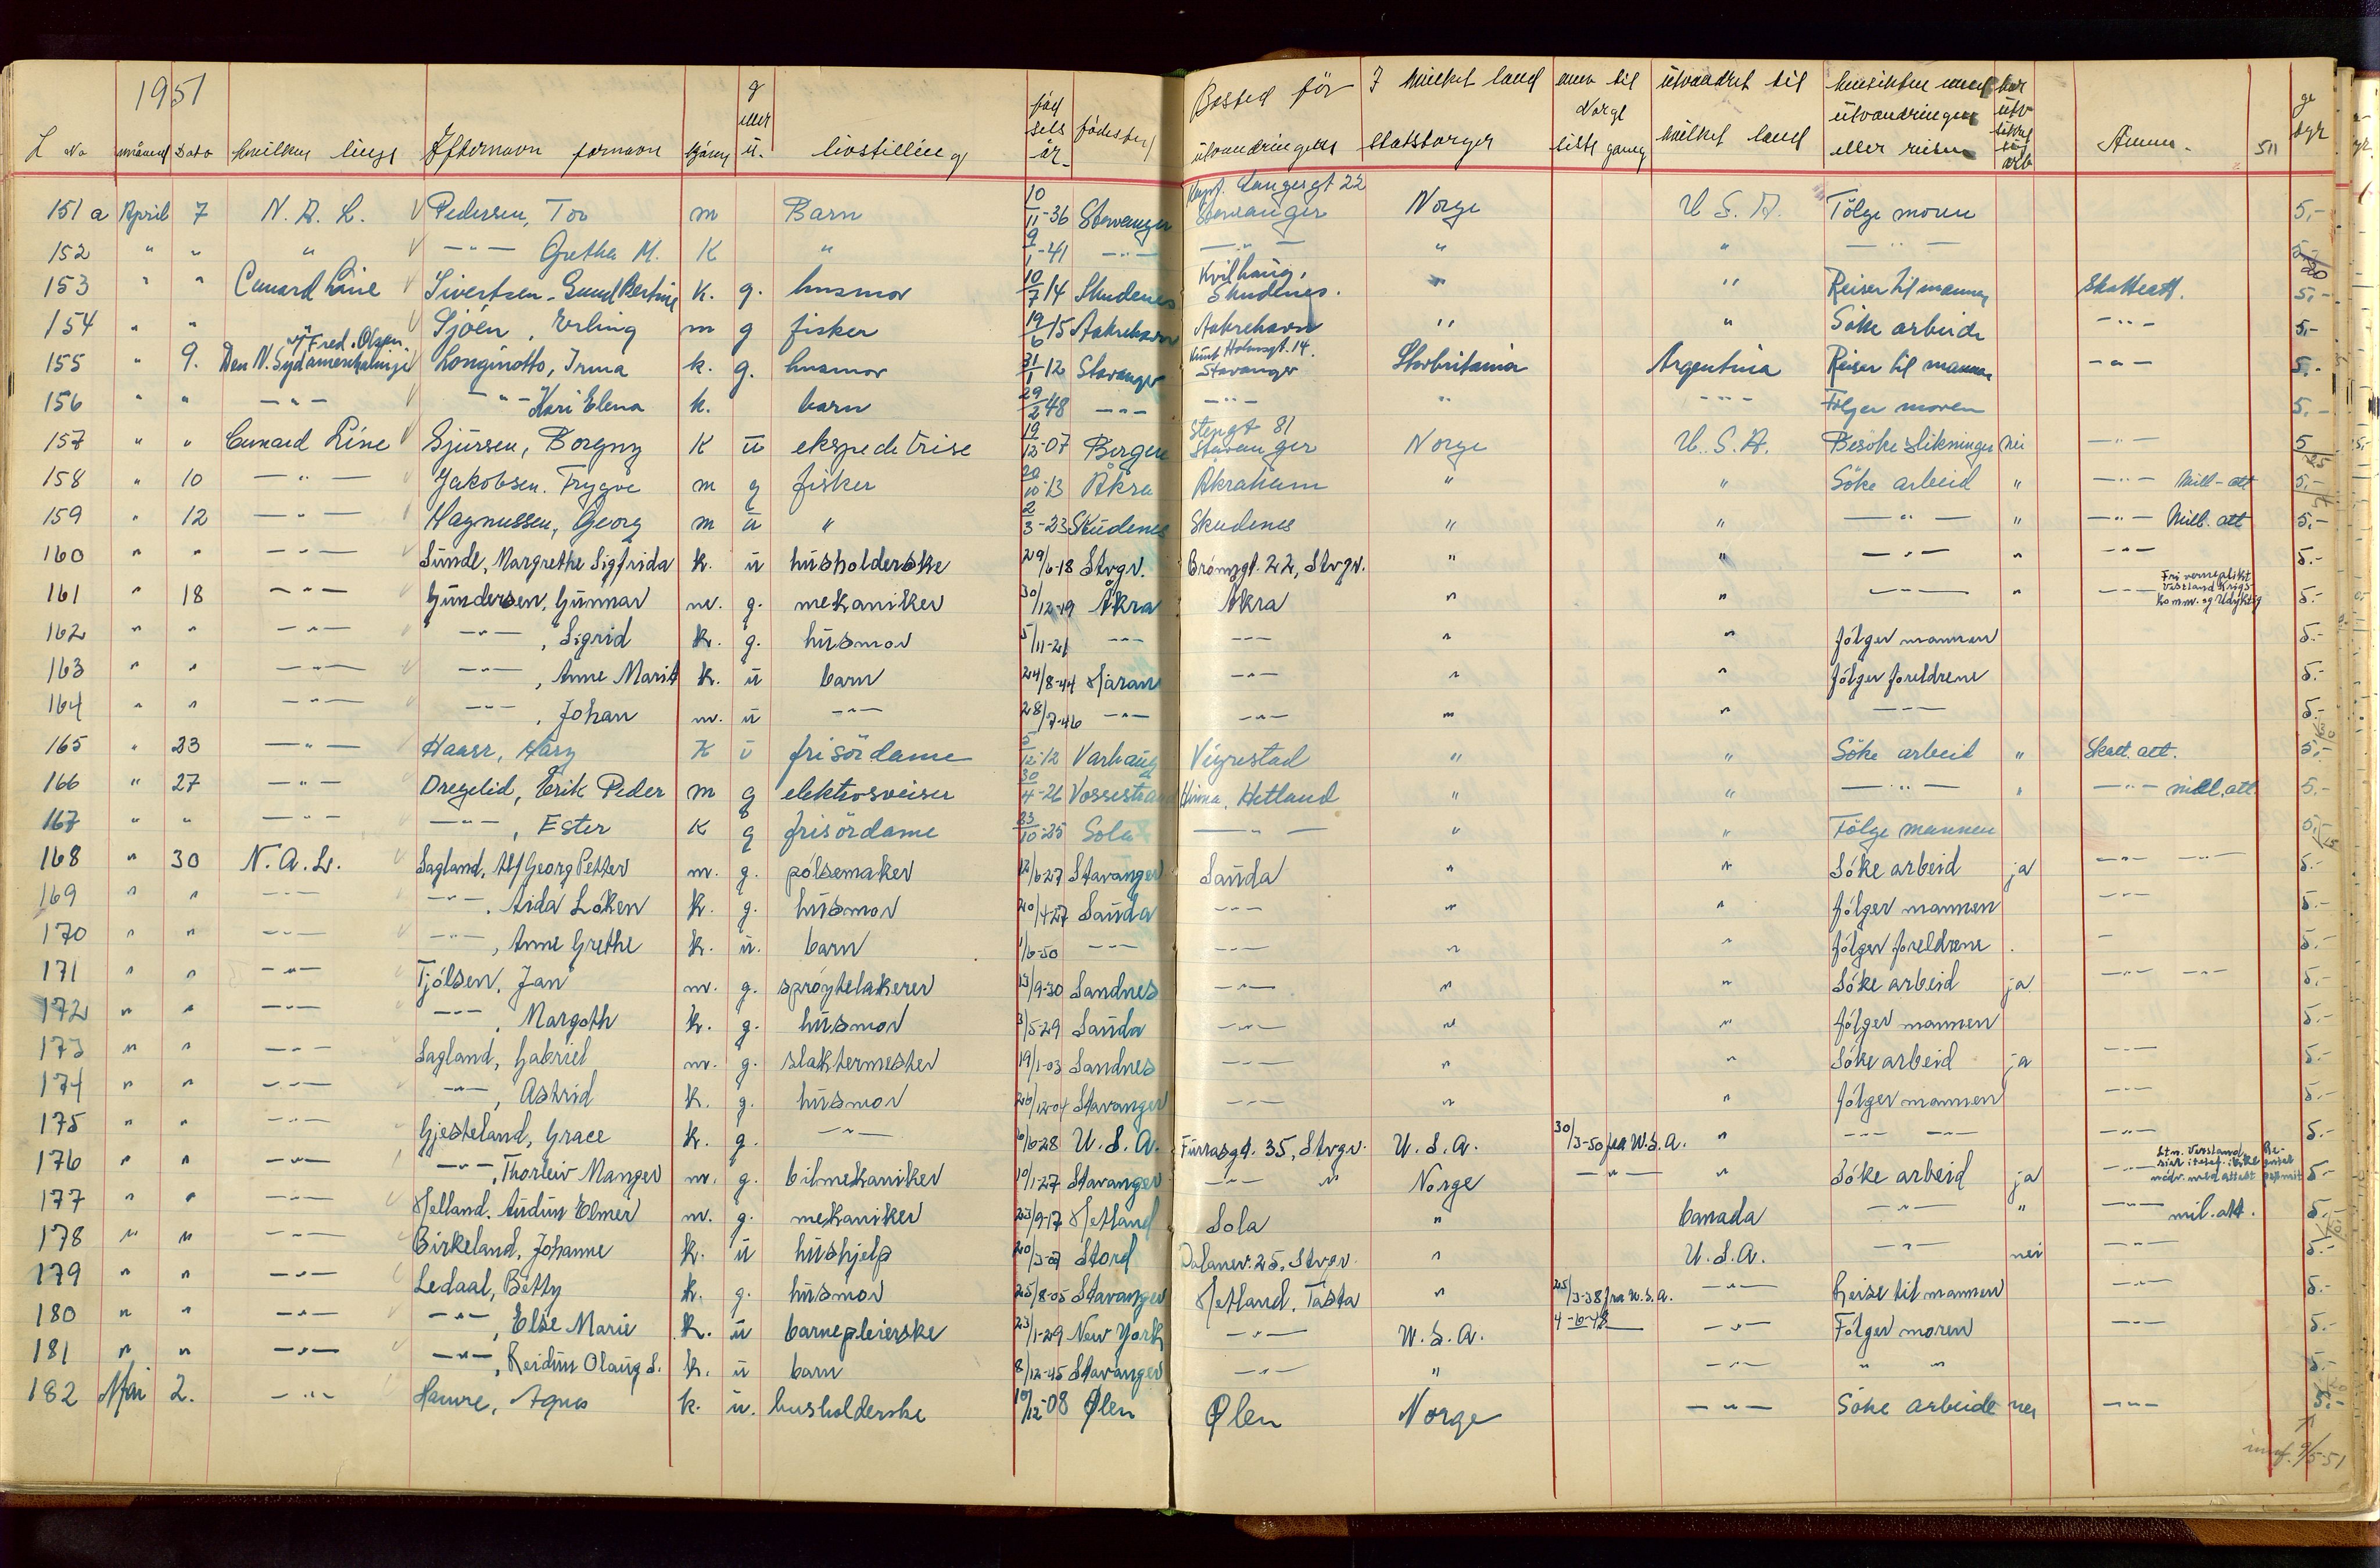 1951
L No måned Dato hvilken linje Efternavn fornavn kjønn g eller u. livsstilling föd sels år fødested Bosted før utvandringen I hvilket land statsborger ann til Norge siste gang utvandret til hvilket land hensikten med utvandringen eller reisen har utv sikret sig arb Anm. 511 ge byr
151 a April 7 N. A. L. Pedersen, Tor m Barn 10/11-36 Stavanger Kapt. Langesgt 22 Stavanger Norge U S. A. Følge moren 5,-
152 " " " -"- Grethe M. K " 9/1-41 -"- -"- " " -"- 5,-
153 " " Cunard Line Sivertsen, Gund Bertine K. g. husmor 10/7 14 Skudenes Kvilhaug, Skudenes. " " Reiser til mannen Skatteatt. 5,-
154 " " Sjöen, Erling m g fisker 19/6 15 Aakrehavn Aakrehavn " " Söke arbeide -"- 5,-
155 " 9. v/ Fred. Olsen Den N. Sydamerikalinje Longinotto, Irma k. g. husmor 31/1-12 Stavanger Knut Holmsgt. 14. Stavanger Storbritania Argentina Reiser til mannen -"- 5,-
156 " " -"- -"- Kari Elena k. barn 29/2 48 -"- -"- " -"- Følger moren 5,-
157 " " Cunard Line Sjursen, Borgny K u ekspeditrise 19/12-07 Bergen Stengt 81 Stavanger Norge U. S. A. Besöke slektninger nei -"- 5
158 " 10 -"- Jakobsen. Trygve m g fisker 20/10-13 Åkra Åkrahamn " " Söke arbeid " -"- Mill-att 5,-
159 " 12 -"- Magnussen, Georg m u " 2/3-23 Skudenes Skudenes " " -"- " -"- Mill. att 5,-
160 " " -"- Sunde, Margrethe Sigfrida k. u husholderske 29/6-18 Stvgr. Brønngt. 22, Stvgr. " " -"- " -"- 5.-
161 " 18 -"- Gundersen, Gunnar m. g. mekaniker 30/12-19 Åkra Åkra " " -"- " -"- Fri vernepliktt Vestland Krigs komm. og Udyktig 5.-
162 " " -"- -"-, Sigrid k. g. husmor 5/11-21 -"- -"- " " følger mannen 5.-
163 " " -"- -"-, Anne Marit k. u barn 24/8-44 Jæran -"- " " følger foreldrene 5.-
164 " " -"- -"-, Johan m. u -"- 28/7-46 -"- -"- " " -"- 5.-
165 " 23 -"- Haaer, Mary K u frisördame 5/12-12 Varhaug Vigrestad " " Söke arbeid " Skatt. att. 5,-
166 " 27 -"- Dregelid, Erik Peder m g elektrosveiser 30/4-26 Vossestrand Hinna, Hetland " " -"- " -"- mill. att 5.-
167 " " -"- -"-, Ester K g frisördame 23/10-25 Sola -"- " " Følge mannen 5,-
168 " 30 N. A. L. Sagland, Alf Georg Petter m. g. pølsemaker 12/6-27 Stavanger Sauda " " Søke arbeid ja -"- -"- 5.-
169 " " -"- -"-, Aida Løken k. g. husmor 20/4-27 Sauda -"- " " følger mannen -"- 5.-
170 " " -"- -"-, Anne Grethe k. u. barn 1/6-50 -"- -"- " " følger foreldrene . - 5.-
171 " " -"- Tjølsen, Jan m. g. sprøytelakerer 13/9-30 Sandnes -"- " " Søke arbeid ja -"- -"- 5.-
172 " " -"- -"-, Margoth k. g. husmor 3/5-29 Sauda -"- " " følger mannen 5.-
173 " " -"- Sagland, Gabriel m. g. slaktermester 19/1-03 Sandnes -"- " " Søke arbeid ja -"- 5.-
174 " " -"- -"-, Astrid k. g. husmor 26/12-04 Stavanger -"- " " følger mannen -"- 5.-
175 " " -"- Gjesteland, Grace k. g. -"- 6/6-28 U. S. A. Furrasgt. 35, Stvgr. U. S. A. 30/3-50 fra U.S.A. " -"- -"- -"- 5.-
176 " " -"- -"-, Thorleiv Manger m. g. bilmekaniker 10/1-27 Stavanger -"- " Norge -"- " Søke arbeid ja -"- 5.-
177 " " -"- Helland. Audun Elmer m. g. mekaniker 23/9-17 Hetland Sola " Canada -"- " -"- mil. att. 5.-
178 " " -"- Birkeland, Johanne k. u hushjelp 20/3-27 Stord Dalanev. 25, Stvgr. " U. S. A. -"- nei -"- 5.-
179 " " -"- Ledaal, Betty k. g. husmor 25/8-05 Stavanger Hetland, Tasta " 25/3-38 fra U.S.A. -"- Reise til mannen -"- 5.-
180 " " -"- -"-, Else Marie k. u barnepleierske 23/1-29 New York -"- U. S. A. 4-6-48 -"- Følger moren -"- 5.-
181 " " -"- -"-, Reidun Olaug S. k. u barn 8/12-45 Stavanger -"- " -"- " " 5.-
182 Mai 2. -"- Hamre, Agnes k. u. husholderske 10/12-08 Ølen Ølen Norge -"- Söke arbeide nei -"- 5.-
innf. 9/5-51